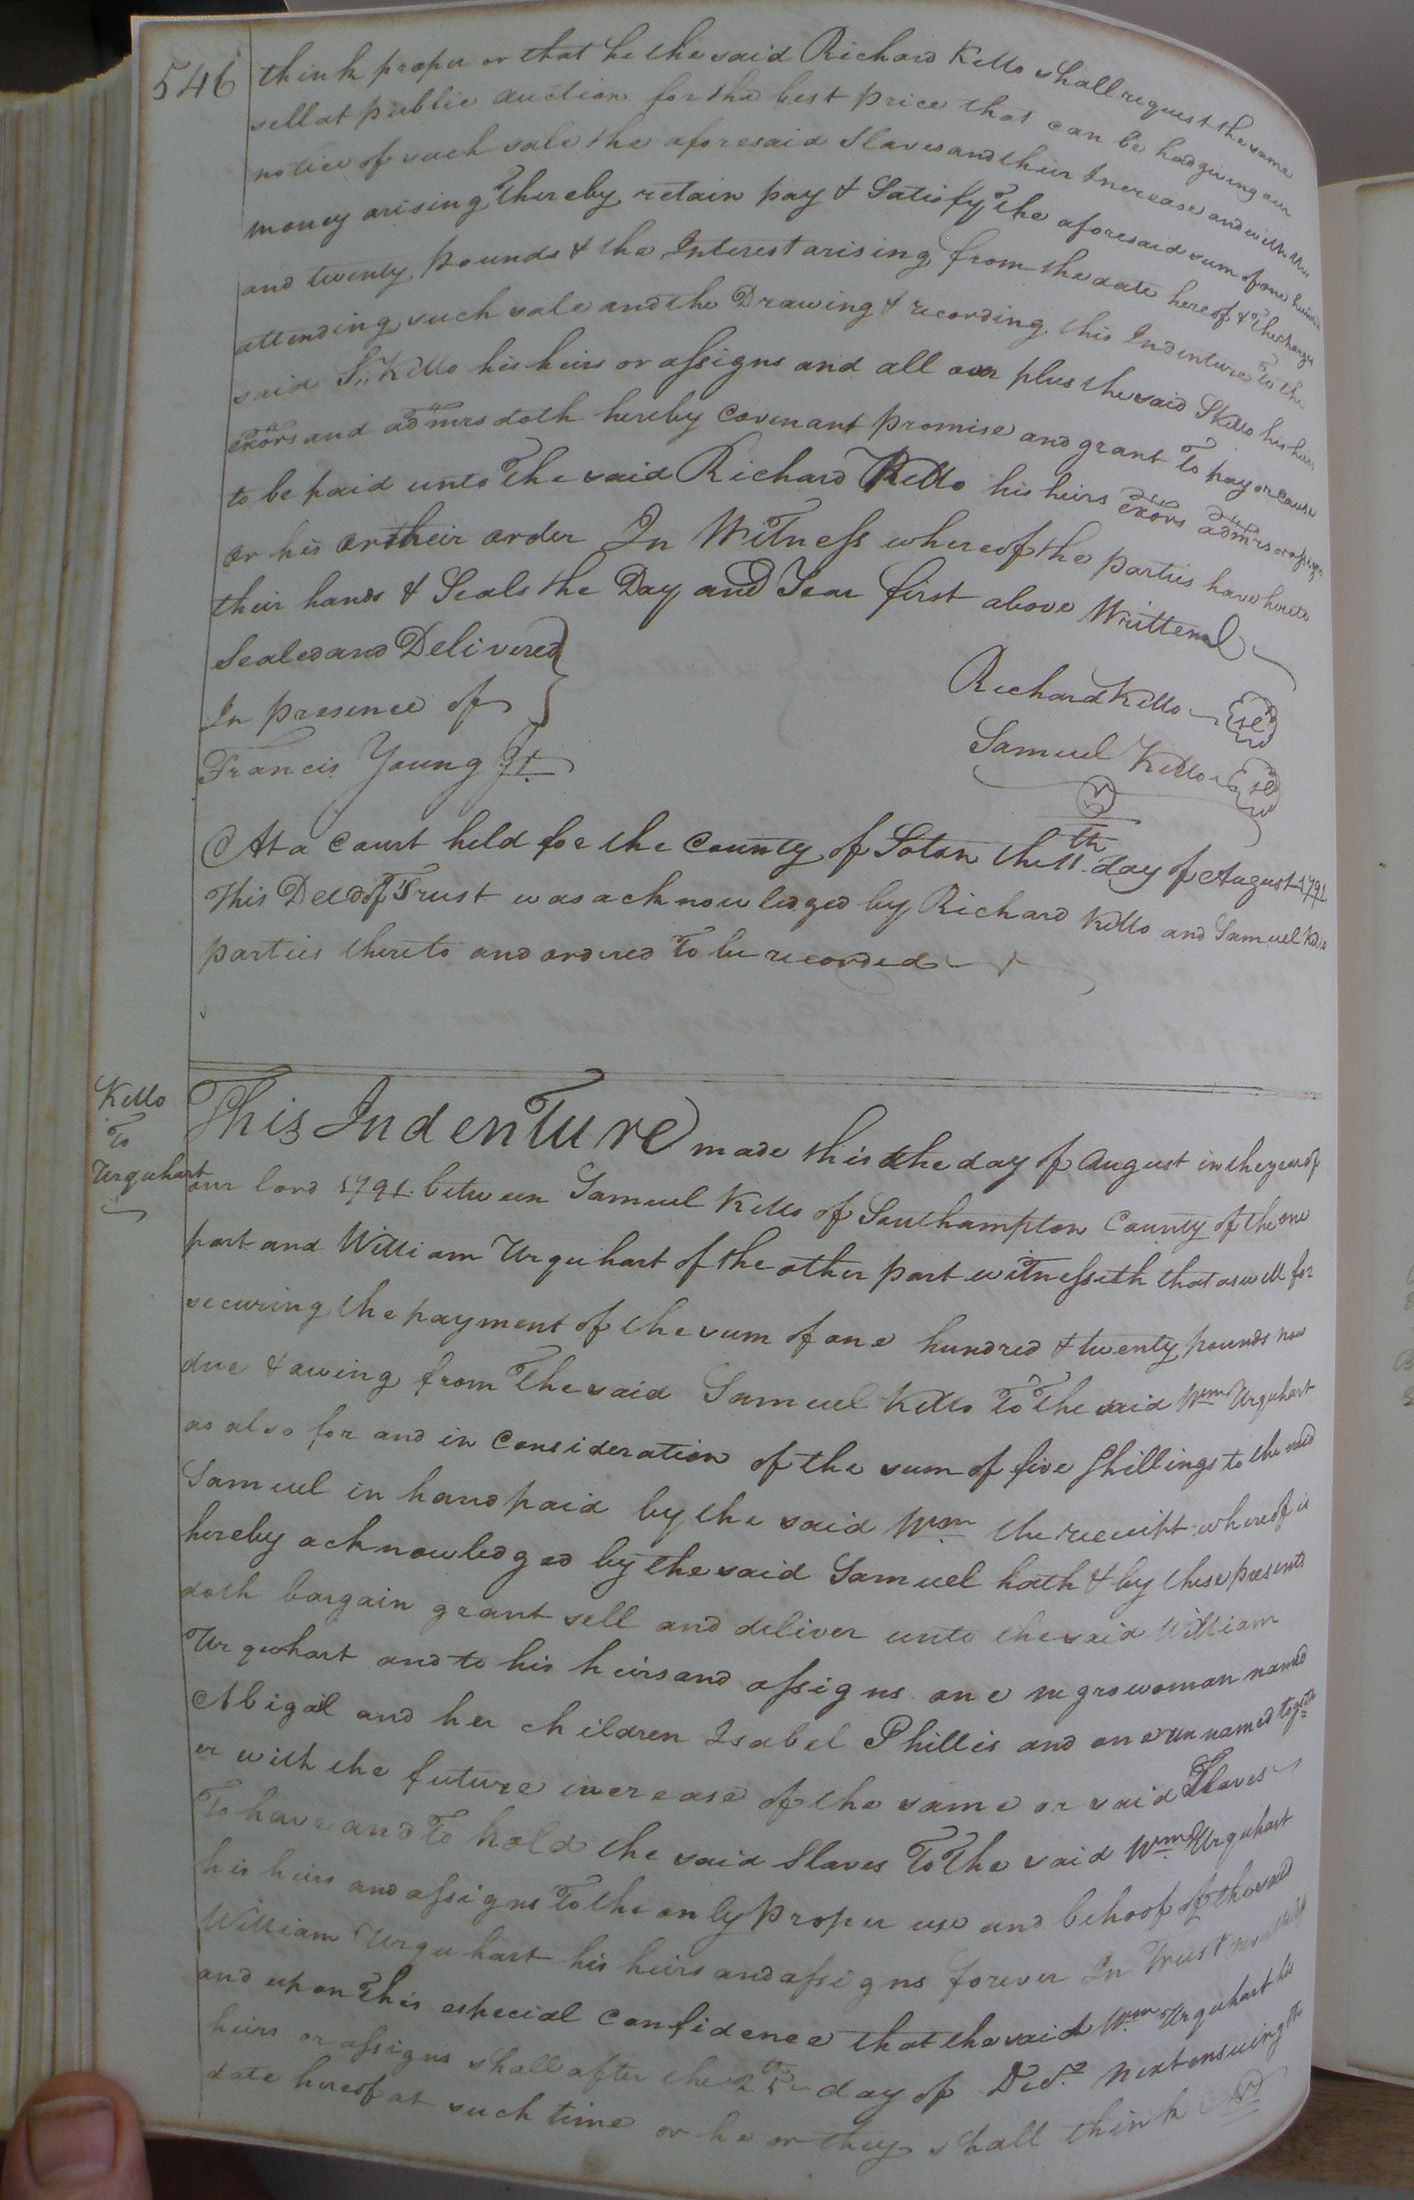 546
think proper or that he the said Richard Kello shall request the same
sell at public auction for the best price that can be had giving
notice of such sale the aforesaid Slaves and their Increase and with the
money arising Thereby retain pay & Satisfy The aforesaid sum of one hundred
and twenty Pounds & the Interest arising from the date hereof & The charges
attending such sale and the Drawing & recording this Indenture To the
said S,, Kello his heirs or assigns and all over plus the said S Kello his heirs
exors and admrs doth hereby Covenant promise and grant To pay or cause
to be paid unto The said Richard Kello his heirs exors admrs or assigns
or his or their order In Witness whereof the parties have hereto
their hands & Seals the Day and Year first above Written
Sealed and Delivered
In presence of
Francis Young Jr.
Richard Kello Sed
Samuel Kello Sed
At a Court held for the County of Soton the 11th day of August 1791
This Deed of Trust was acknowledged by Richard Kello and Samuel Kello
parties thereto and ordered To be recorded
Kello
To
Urquhart
This Indenture made this the day of August in the year of
our lord 1791. between Samuel Kello of Southampton County of the one
part and William Urquhart of the other part witnesseth that as well for
securing the payment of the sum of one hundred & twenty pounds now
due & owing from The said Samuel Kello To The said Wm Urquhart
as also for and in Consideration of the sum of five Shillings to the said
Samuel in hand paid by the said Wm. the receipt whereof is
hereby acknowledged by the said Samuel hath & by these presents
doth bargain grant sell and deliver unto the said William
Urquhart and to his heirs and assigns one negro woman named
Abigail and her children Isabel Phillis and one un named togeth
er with the future increase of the same or said Slaves
To have and To hold the said Slaves To The said Wm. Urquhart
his heirs and assigns To the only proper use and behoof of the said
William Urquhart his heirs and assigns forever In Trust
and upon This especial Confidence that the said Wm. Urquhart his
heirs or assigns shall after the 25th day of Decr. next ensuing the
date hereof at such time or he or they shall think